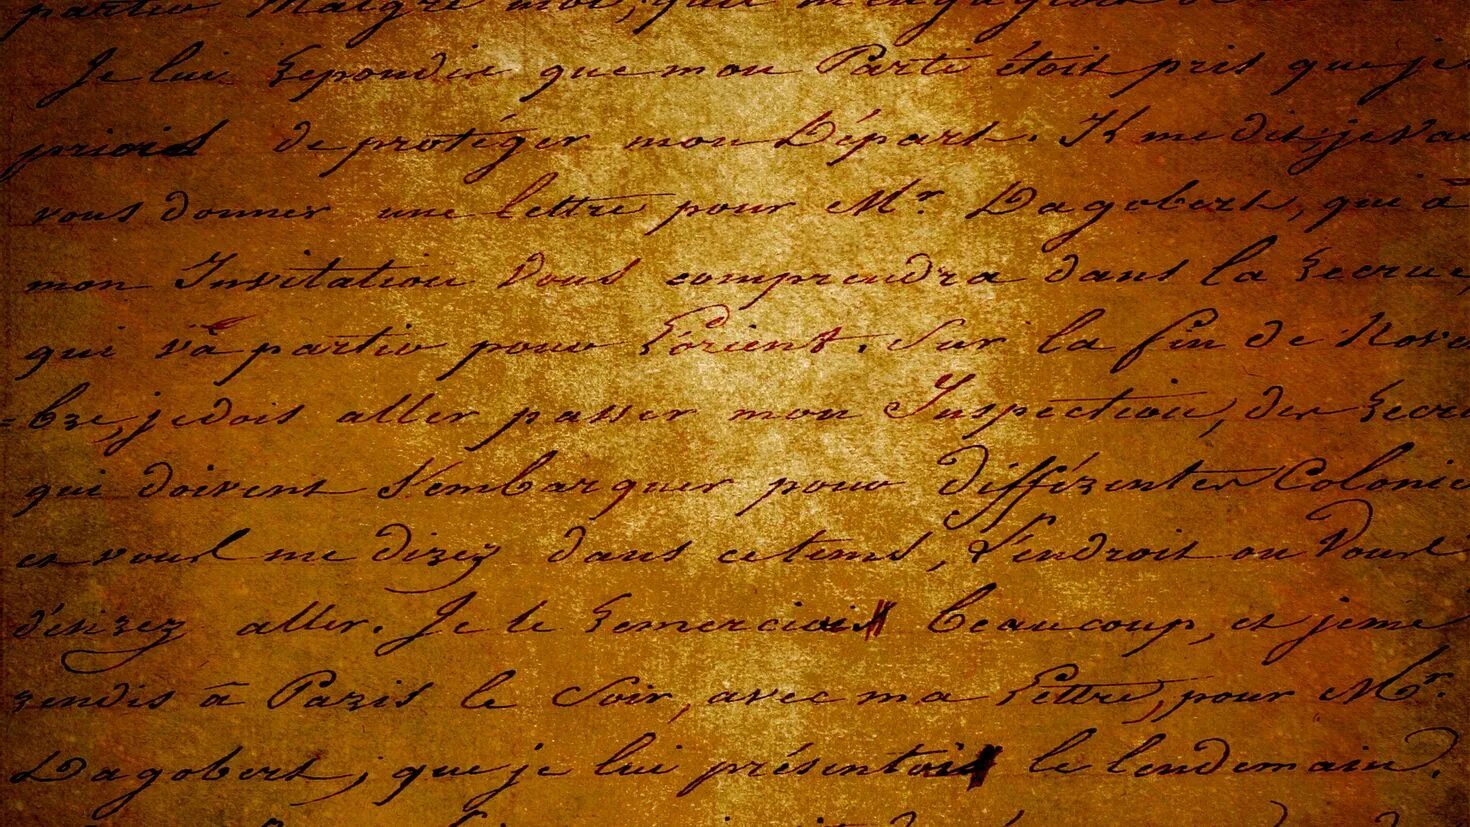 partir Malgré moi, qu'il m'engageoit
Je lui repondis que mon Parti étoit pris que je
priois de protéger mon Départ. Il me dit; je va
vous donner une lettre pour Mr. Dagobert, qui à
mon Invitation vous comprendra dans la recrue,
qui va partir pour Lorient. Sur la fin de Nove
=bre, je dois aller passer mon Inspection, des recru
qui doivent s'embarquer pour différentes Colonie
et vous me direz dans ce tems, l'endroit ou vous
désirez aller. Je le remerciois beaucoup, et je me
rendis à Paris le soir, avec ma lettre, pour Mr.
Dagobert; que je lui présentois le lendemain.